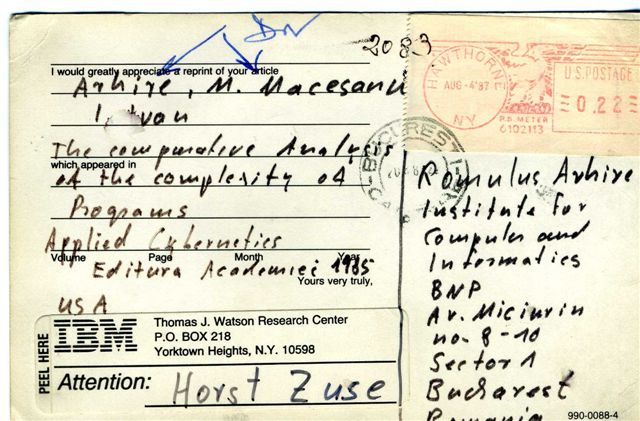 2083
I would greatly appreciate a reprint of your article
Arhire, M. Macesanu
The comparative Analysis
which appeared in
of the complexity of
Programs
Applied Cybernetics
Volume Page Month Year
Editura Academiei 1985
Yours very truly,
USA
PEEL HERE
IBM
Thomas J. Watson Research Center
P.O. BOX 218
Yorktown Heights, N.Y. 10598
Attention: Horst Zuse
HAWTHORNE
AUG -4'87
NY
P.B. METER
6102113
U.S. POSTAGE
0.22
BUCURESTI
Romulus Arhire
Institute for
Computer and
Informatics
BNP
Av. Miciurin
no. 8-10
Sector 1
Bucharest
Romania
990-0088-4